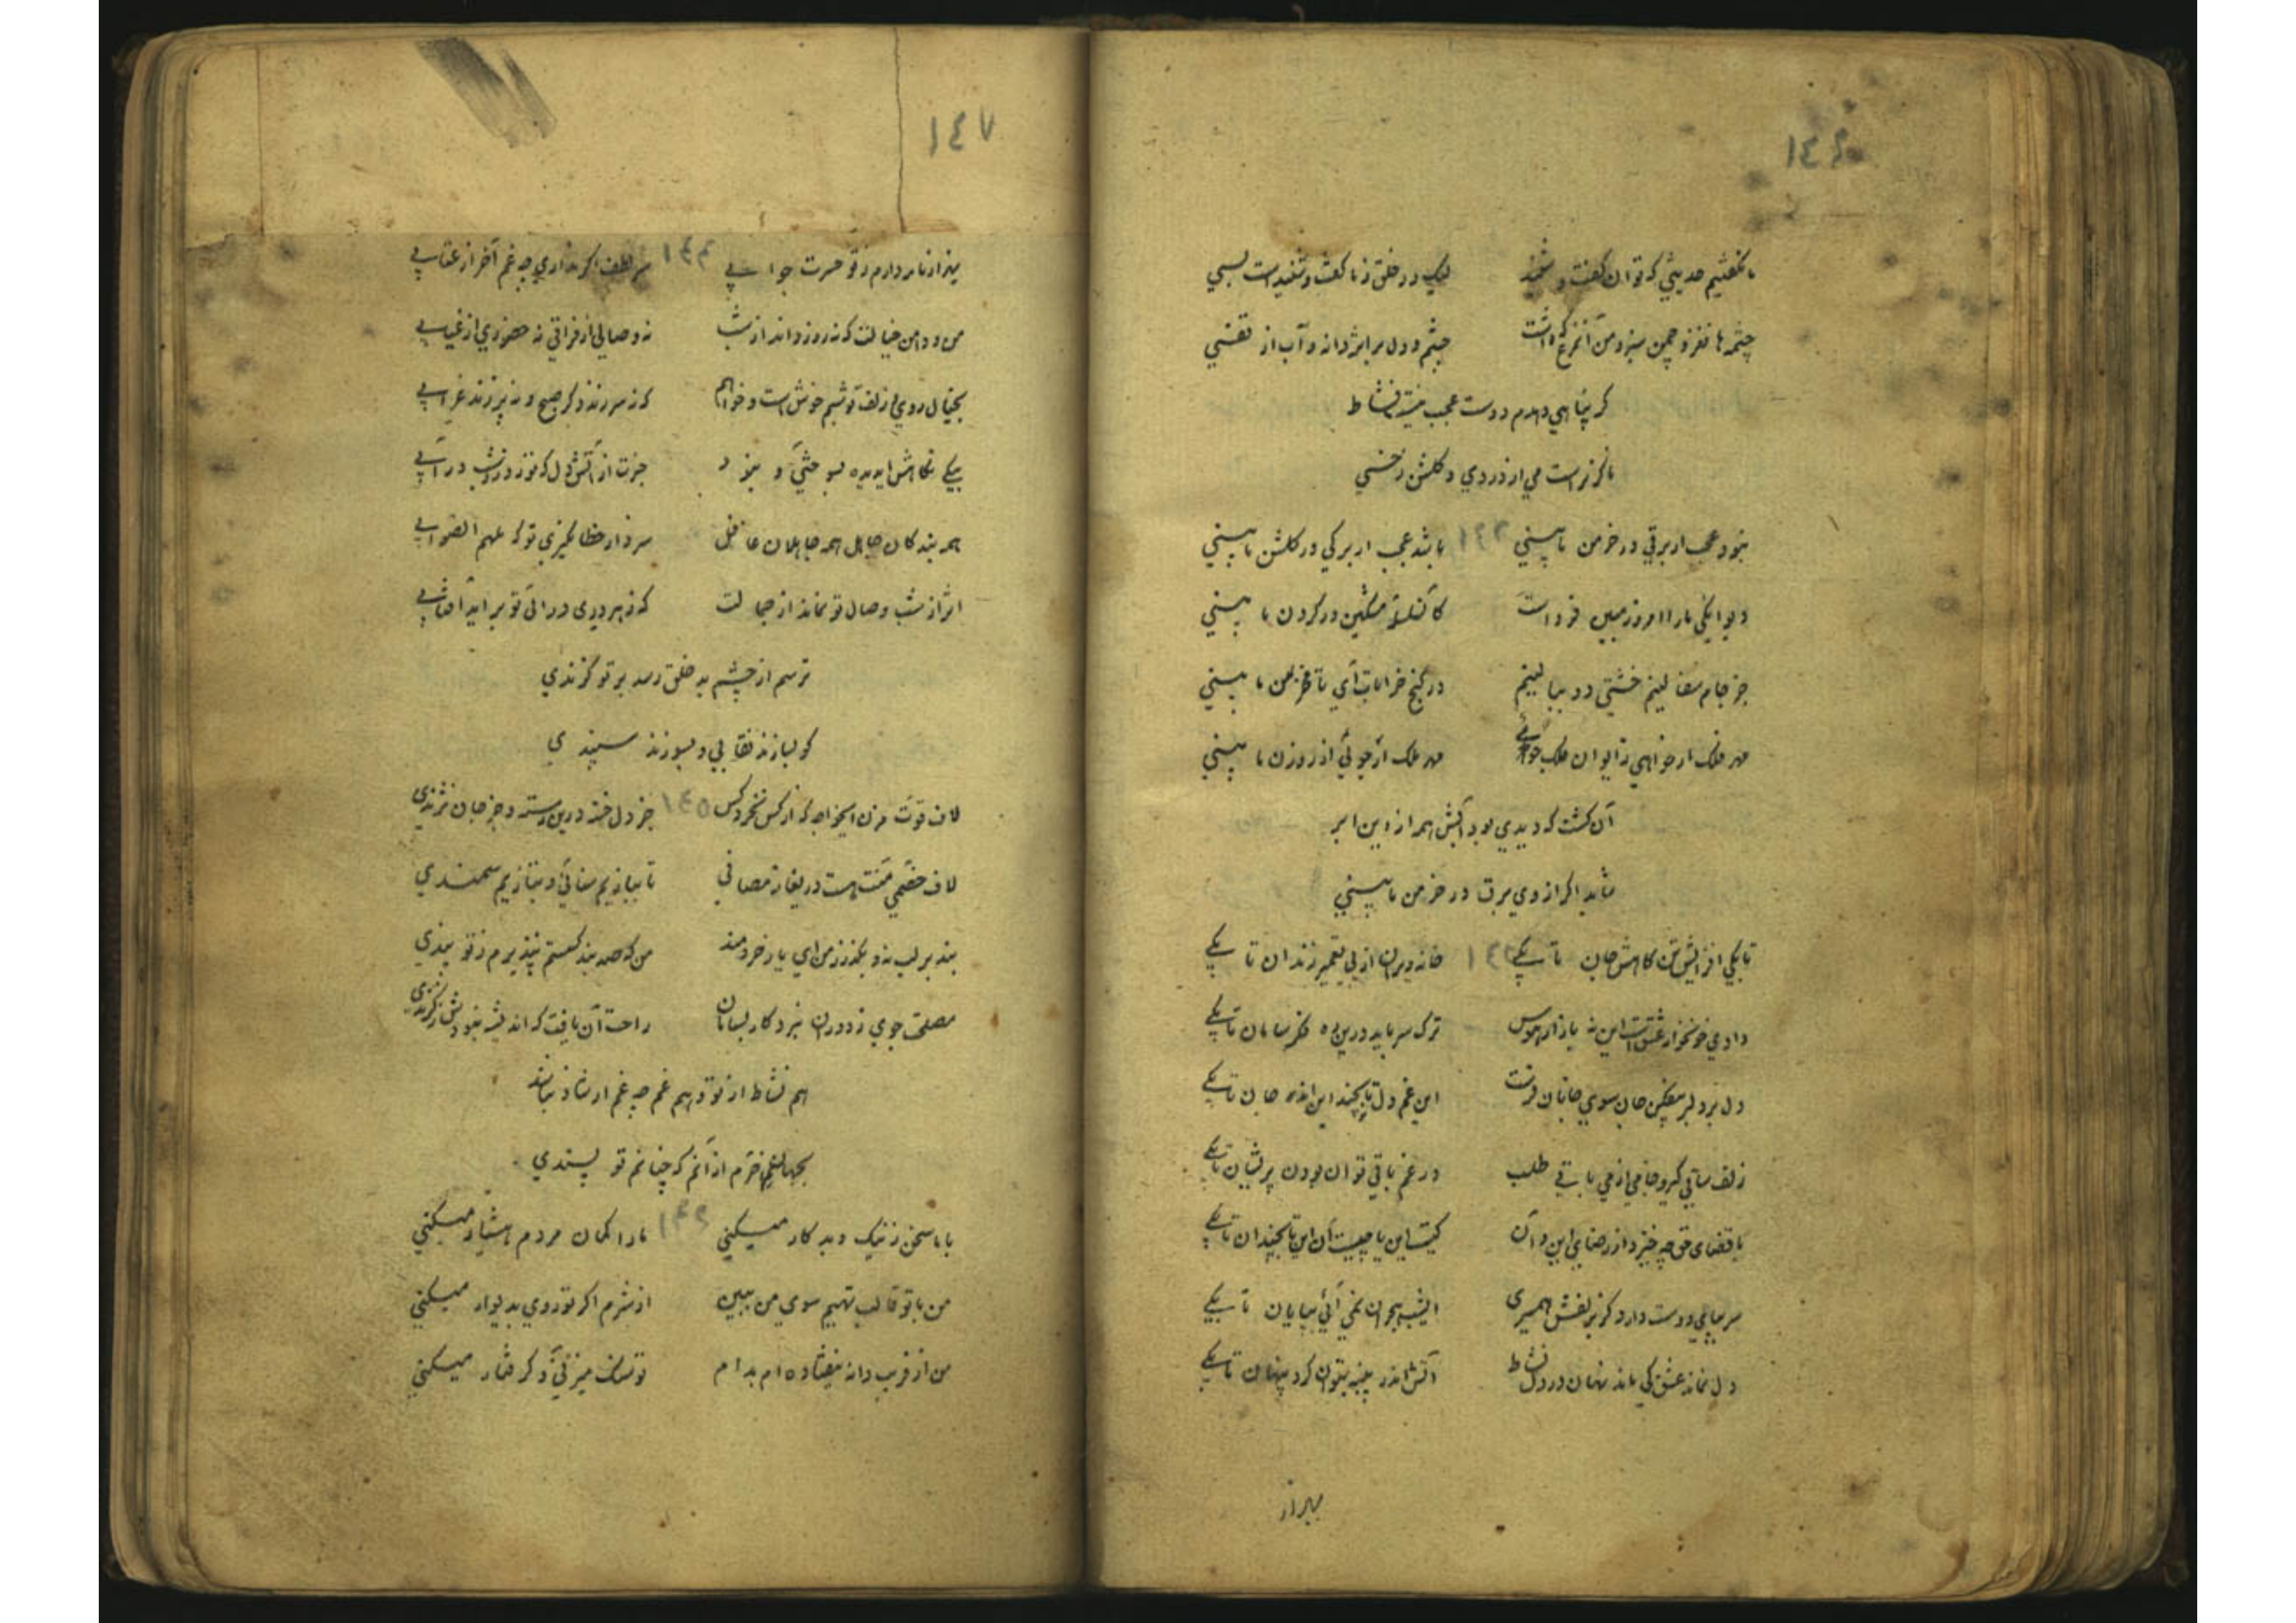 ١٤٦
ما نگفتیم حدیثی که توان گفت و شنید لیک در خلق ز ما گفت و شنیدست بسی
چشمه ها نغز و چمن سبز و من آنمرغ که داشت چشم و دل بر اثر دانه و آب از قفسی
کر پناهی دهدم دوست عجب نیست نشاط
ناگزیرست می از دردی و گلشن ز خسی
نبود عجب ار برقی در خرمن ما بینی ١٤٢ باشد عجب ار برکی در گلشن ما بینی
دیوانگی ما را امروز مبین فرداست کان سلسلهٔ مشکین در گردن ما بینی
جز جام سفالینم خشتی دو ببالینم در کنج خرابات آی تا مخزن ما بینی
مهر فلک ار خواهی ز ایوان ملک جوئی مهر ملک ار جوئی از روزن ما بینی
آن کشت که دیدی بود آبش همه از این ابر
شاید اگر از وی برق در خرمن ما بینی
تا بکی افزایش تن کاهش جان تا بکی ١٤٣ خانه ویران از پی تعمیر زندان تا بکی
وادی خونخوار عشقست این نه بازار هوس ترک سر باید درین ره فکر سامان تا بکی
دل بر دلبر مقیم جان سوی جانان رفت این غم دل تا بچند این انده جان تا بکی
زلف ساقی گیر و جامی از می باقی طلب در غم باقی توان بودن پریشان تا بکی
با قضای حق چه خیزد از رضای این و آن کیست این یا چیست آن این تا بچند آن تا بکی
سر بپای دوست دارد کر بزلفش همسری ای شب هجران نمی آئی بپایان تا بکی
دل نماند عشق کی ماند نهان در دل نشاط آتش اندر پنبه بتوان کرد پنهان تا بکی
بیزار
١٤٧
نیز از نامه دارم ز تو حسرت جوابی ١٤٤ سر لطف اگر نداری چه غم آخر از عتابی
من و دامن خیالت که نه روز داند از شب نه وصالی از فراقی نه حضوری از غیابی
بخیال روی و زلف تو شبم خوش است و خواهم که نه سر زند دگر صبح و نه پر زند غرابی
همه بندگان جاهل همه جاهلان غافل سزد ار خطا نگیری تو که ملهم الصوابی
اثر از شب وصال تو نماند از جمالت که ز هر دری در آئی تو بر آید آفتابی
ترسم از چشم بد خلق رسد بر تو گزندی
کو بسازند نقابی و بسوزند سپندی
لاف قوت مزن ایخواجه که از کس نخرد کس ١٤٥ جز دل خسته درین رسته و جز جان نژندی
تا ببازیم سنانی و بتازیم سمندی
بند بر لب نه و بگذر ز من ای یار خردمند من که صد بند گسستم نپذیرم ز تو پندی
مصلحت جوی ز دوران نبرد کار بسامان راحت آن یافت که اندیشه نبودش ز گزندی
هم نشاط از تو و هم غم چه غم ار شاد نباشد
بجهان خرم از آنم که چنانم تو پسندی
با ما سخن ز نیک و بد کار میکنی ١٤٦ ما را گمان مردم هشیار میکنی
من با تو قالب تهیم سوی من ببین از شرم اگر تو روی بدیوار میکنی
من از فریب دانه نیفتاده ام بدام تو سنگ میزنی و گرفتار میکنی